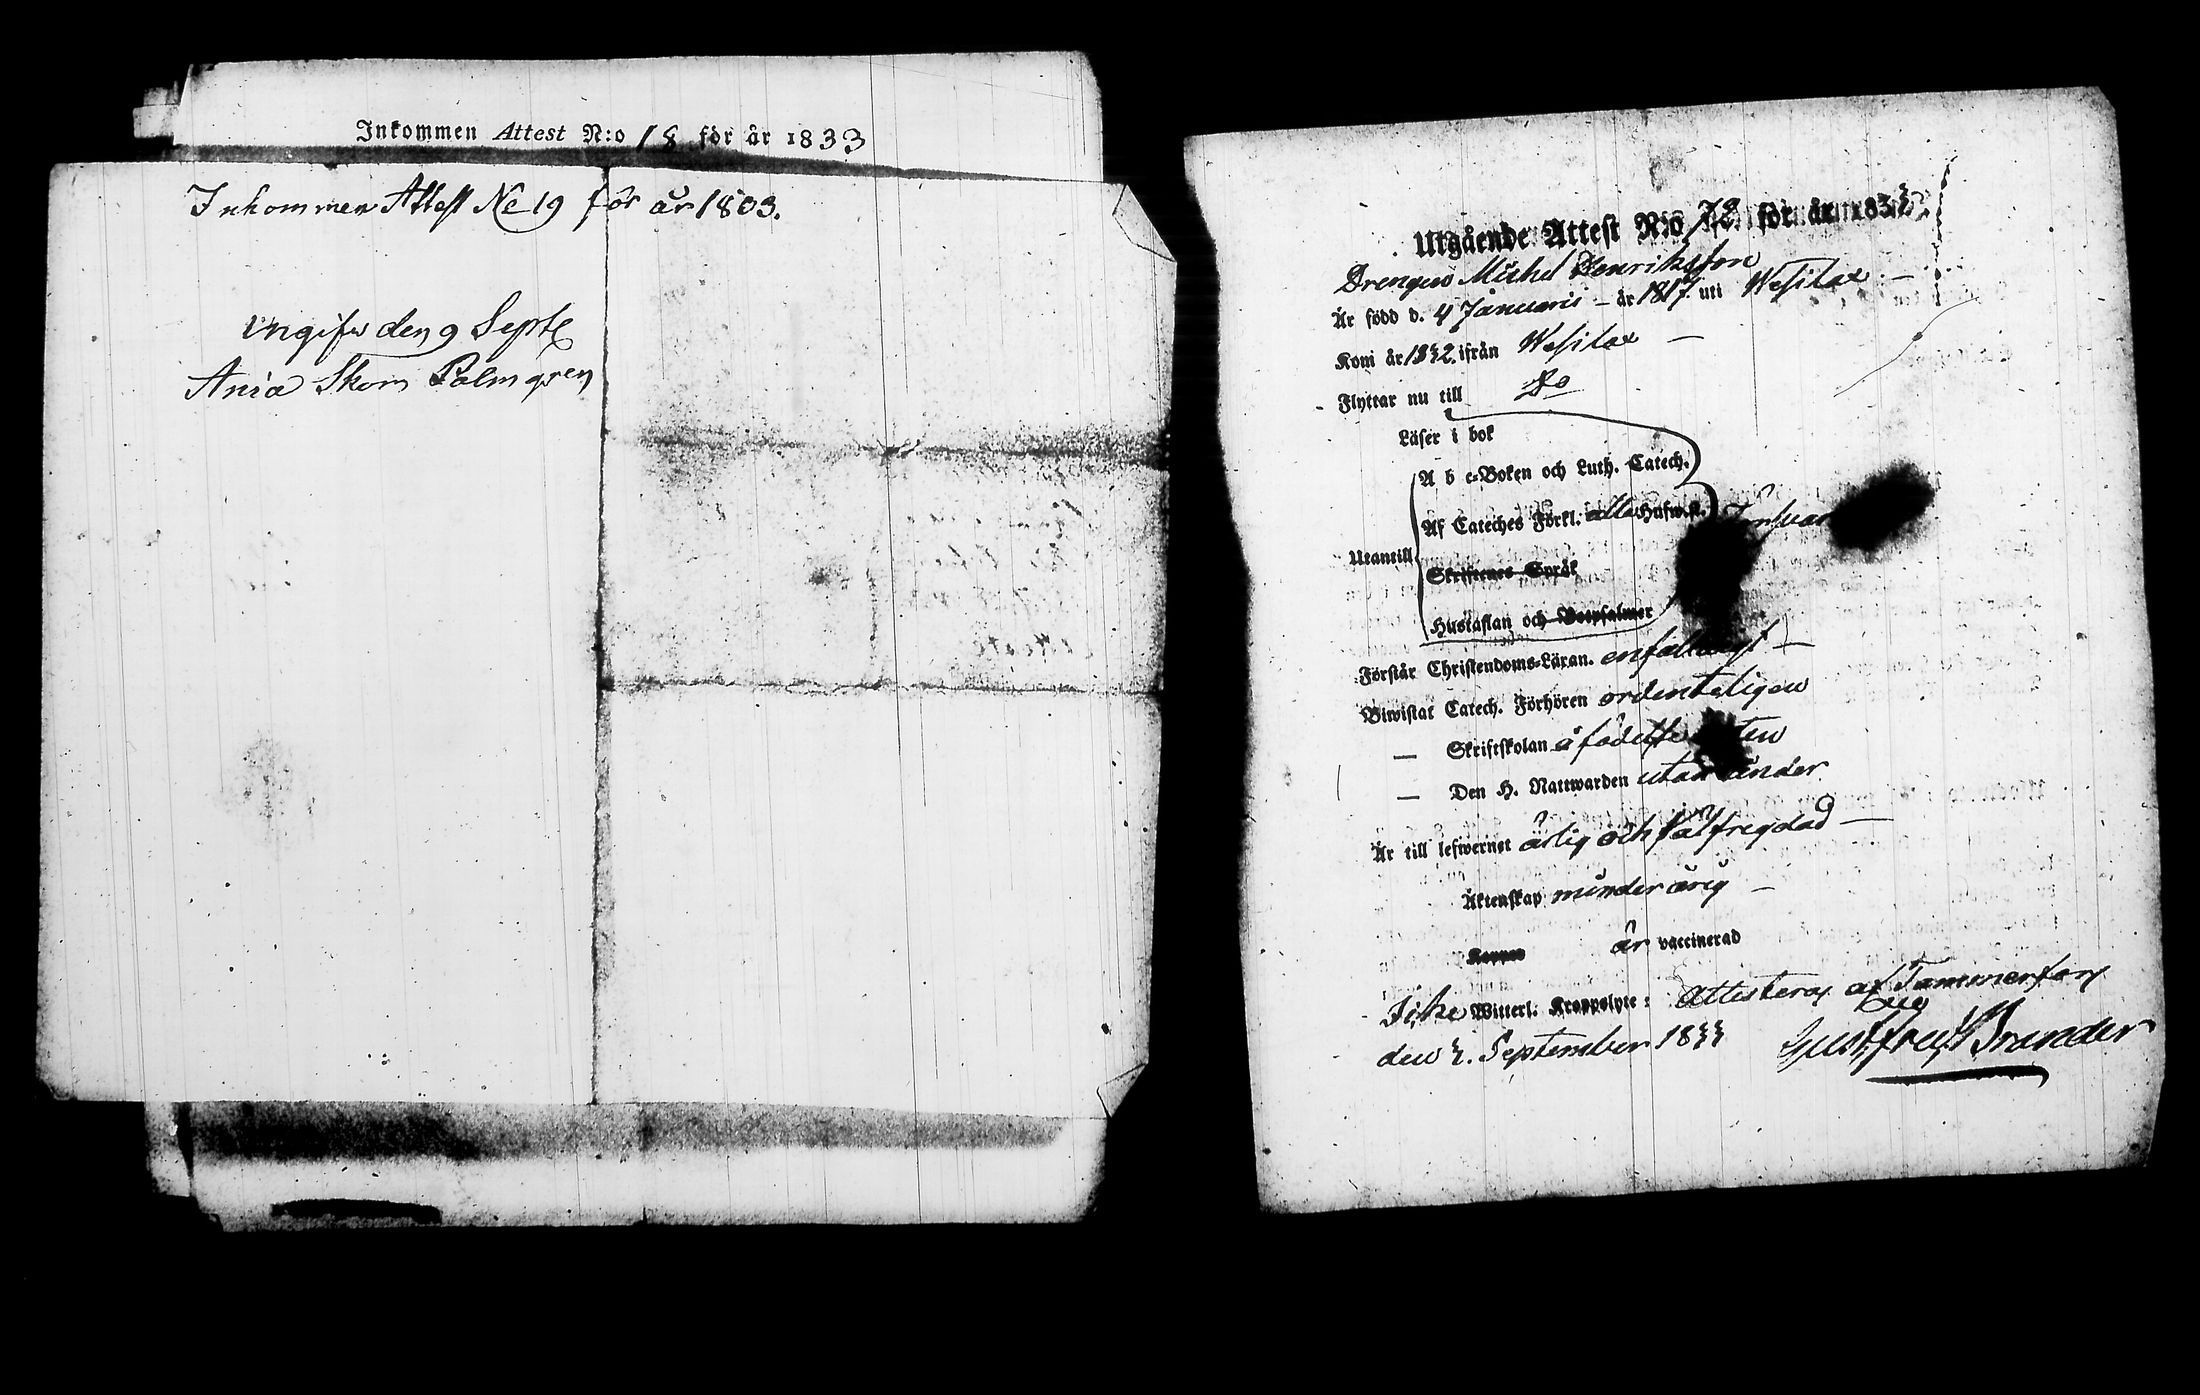 Inkommen Attest N:o 18 för år 1833
Inkommen Attest No 19 för år 1803.
Ingifw den 9 Septe
Ania Skom Palmgren
Utgående Attest N:o 72 för år 1833
Drengen Michel Henriksson
Är född d. 4 Januarii – år 1817 uti Wesilax –
Kom år 1832 ifrån Wesilax –
Flyttar nu till Do
Läser i bok
A b c-Boken och Luth. Catech.
Af Cateches Förkl. alla Hufw.st.
Utantill
Skriftenes Språk
Hustaflan och Botpsalmer
Förstår Christendoms-Läran.
Biwistat Catech. Förhören ordenteligen
— Skriftskolan å födelse
— Den H. Nattwarden utan ander
Är till lefwernet ärlig och välfregdad —
Äktenskap minder årig —
Koppor är vaccinerad
Icke Witterl. Kroppslyte: Attesteras af Tammerfors
den 3. September 1833